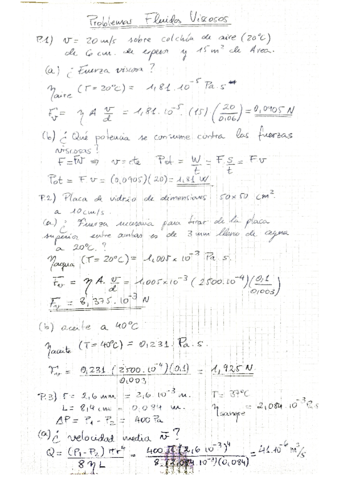 Problemas Fluidos Viscosos
P.1) v = 20 m/s sobre colchón de aire (20ºC)
de 6 cm. de espesor y 15 m² de Area.
(a) ¿Fuerza viscosa?
η aire (T = 20ºC) = 1,81 · 10⁻⁵ Pa · s
Fv = η A v/d = 1,81 · 10⁻⁵ · (15) (20/0,06) = 0,0905 N
(b) ¿Qué potencia se consume contra las fuerzas
viscosas?
v = cte Pot = W/t = F s/t = F v
Pot = F v = (0,0905)(20) = 1,81 W
P.2) Placa de vidrio de dimensiones 50x50 cm²
a 10 cm/s.
(a) ¿Fuerza necesaria para tirar de la placa
superior entre ambas es de 3 mm lleno de agua
a 20ºC?
η agua (T = 20ºC) = 1,005 x 10⁻³ Pa · s
Fv = η A · v/d = 1,005 x 10⁻³ (2500 · 10⁻⁴) (0,1/0,003)
Fv = 8,375 · 10⁻³ N
(b) aceite a 40ºC
η aceite (T = 40ºC) = 0,231 Pa · s.
Fv = 0,231 (2500 · 10⁻⁴)(0,1)/0,003 = 1,925 N
P.3) r = 2,6 mm = 2,6 · 10⁻³ m. T = 37ºC
L = 8,4 cm = 0,084 m. η sangre = 2,084 · 10⁻³ Pa · s
ΔP = P₁ - P₂ = 400 Pa
(a) ¿velocidad media v̄?
Q = (P₁ - P₂) π r⁴ / 8 η L = 400 π (2,6 · 10⁻³)⁴ / 8 (2,084 · 10⁻³)(0,084) = 41 · 10⁻⁶ m³/s